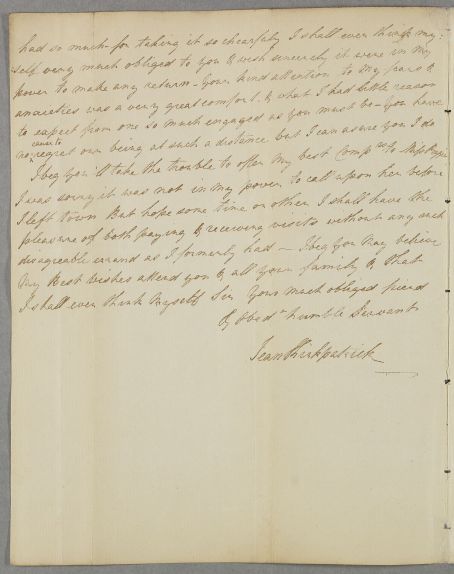 had so much for taking it so chearfuly I shall ever think my:
self very much obliged to you & wish sincerely it were in my
power to make any return - Your kind attention to my fears &
anxieties was a very great comfort & what I had little reason
to expect from one so much engaged as you must be - You have
no cause to regret our being at such a distance but I can asure you I do
I beg you'll take the trouble to offer my best Comp ts to Miss
I was sorry it was not in my power to call upon her before
I left town But hope some time or other I shall have the
pleasure of both paying & receiving visits without any such
disagreeable errand as I formerly had - I beg you may believe
My Best Wishes attend you & all your family & that
I shall ever think myself Sir Your much obliged friend
& Obed t humble Servant
Jean Kirkpatrick